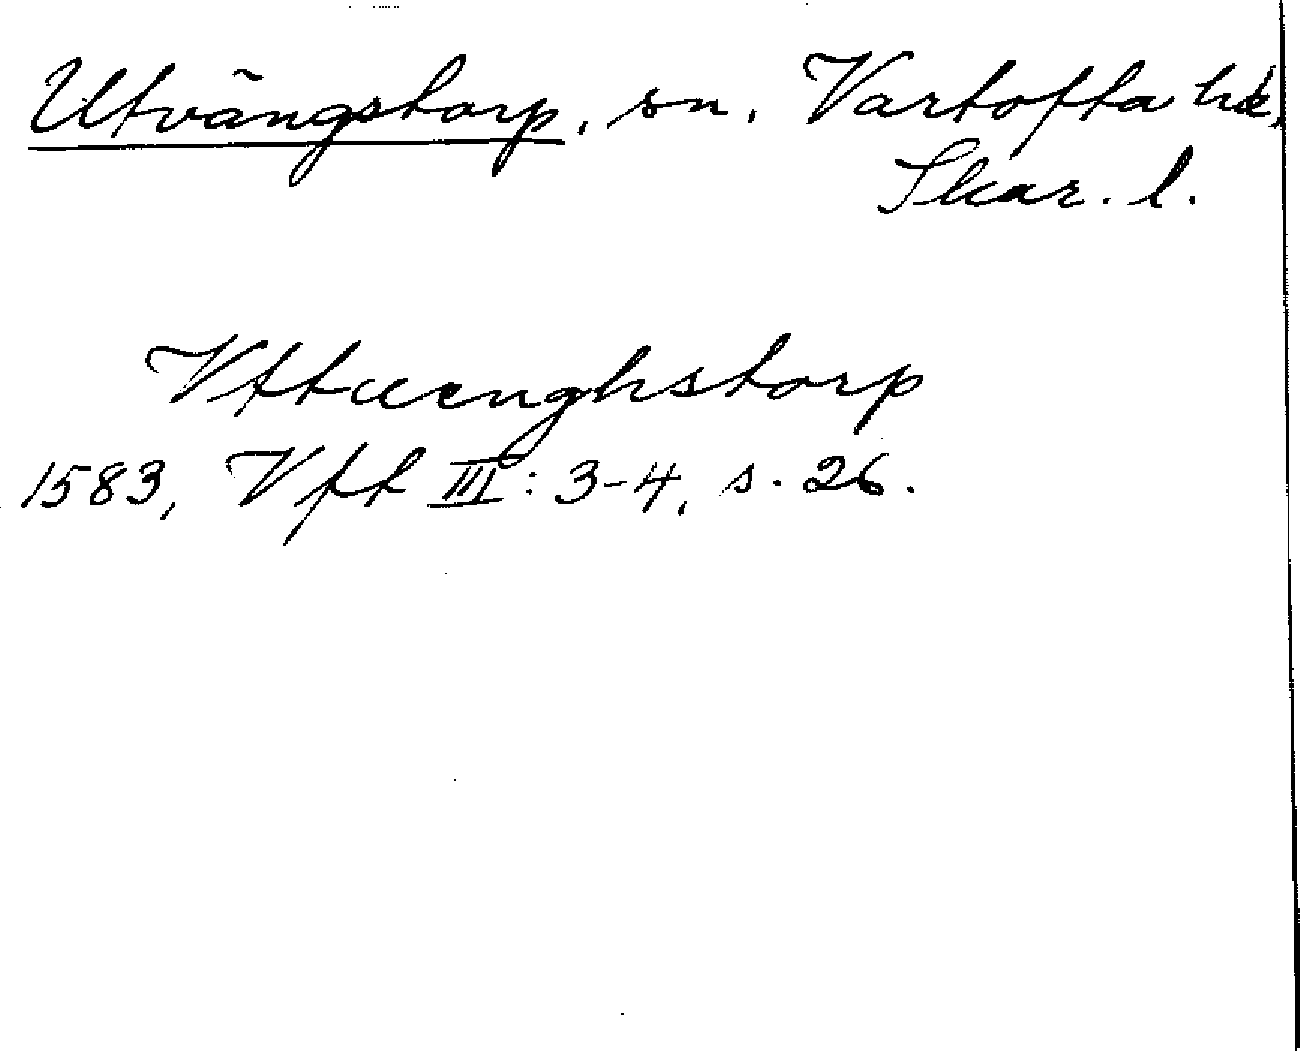 Utvängstorp, sn, Vartofta hd,
Skar. l.
Vttuenghstorp
1583, Vft III: 3-4, s. 26.